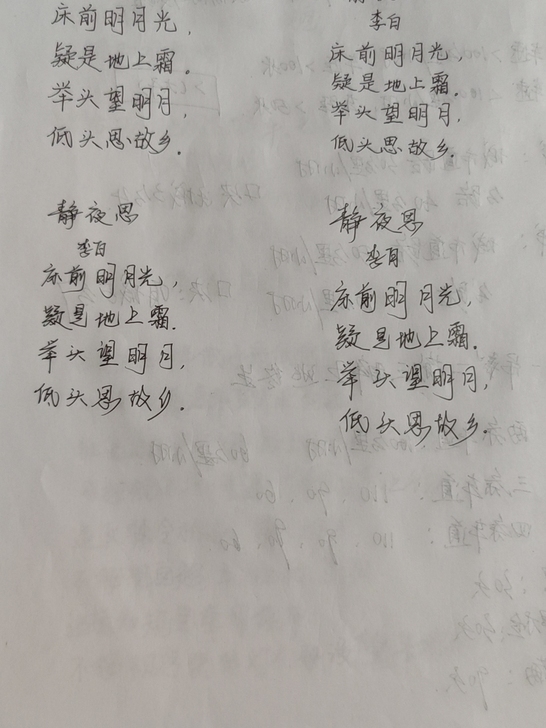 床前明月光，
疑是地上霜。
举头望明月，
低头思故乡.
李白
床前明月光，
疑是地上霜.
举头望明月，
低头思故乡.
静夜思
李白
床前明月光，
疑是地上霜.
举头望明月，
低头思故乡.
静夜思
李白
床前明月光，
疑是地上霜.
举头望明月，
低头思故乡.